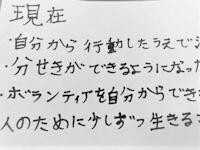 現在
・自分から行動したうえで
・分せきができるようになった
・ボランティアを自分からでき
人のために少しずつ生きる